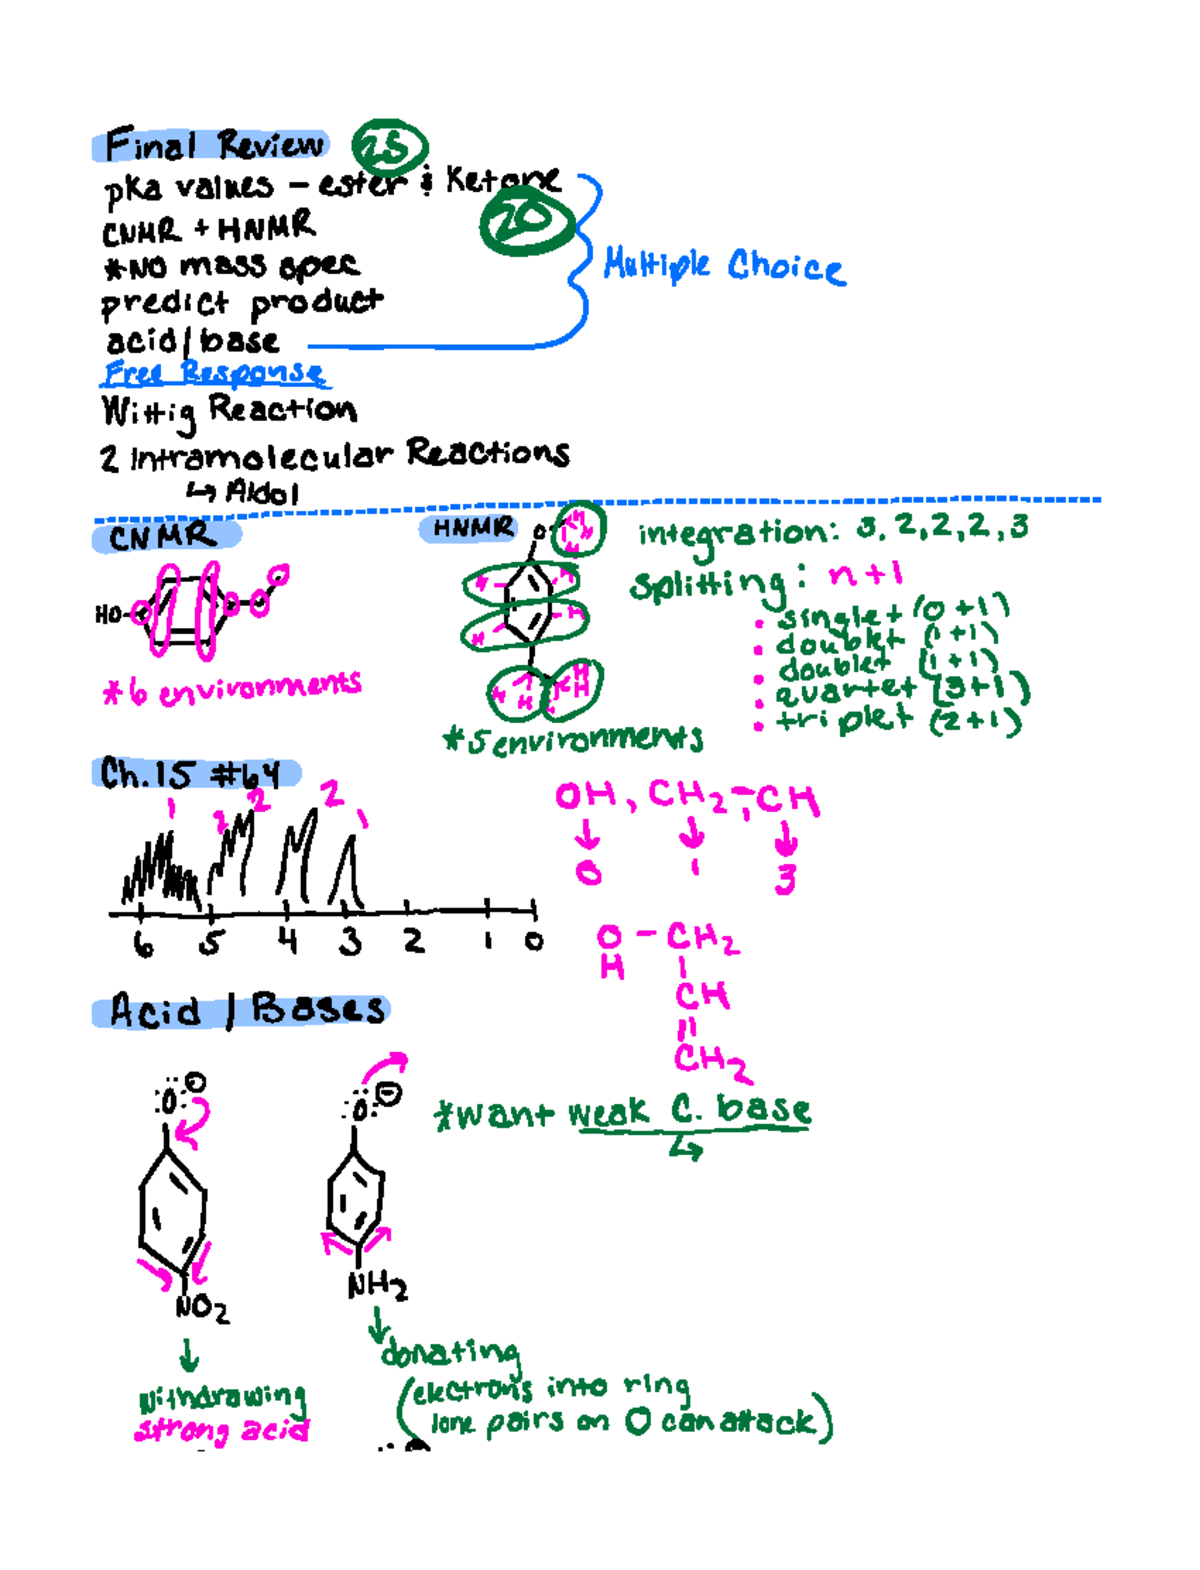 Final Review 25
pKa values - ester & Ketone
20
CNMR + HNMR
*NO mass spec
Multiple Choice
predict product
acid/base
Free Response
Wittig Reaction
2 Intramolecular Reactions
↳ Aldol
CNMR
HO
*6 environments
HNMR
O H H H
H H
H H
H H H H
*5 environments
integration: 3, 2, 2, 2, 3
Splitting: n+1
• singlet (0+1)
• doublet (1+1)
• doublet (1+1)
• quartet (3+1)
• triplet (2+1)
Ch.15 #64
1 2 2 1
6 5 4 3 2 1 0
OH, CH2, CH
0 1 3
O - CH2
H
CH
=
CH2
Acid / Bases
:O: ⊖
NO2
↓
withdrawing
strong acid
:O: ⊖
NH2
↓
donating
(electrons into ring
lone pairs on O can attack)
*want weak C. base
↳